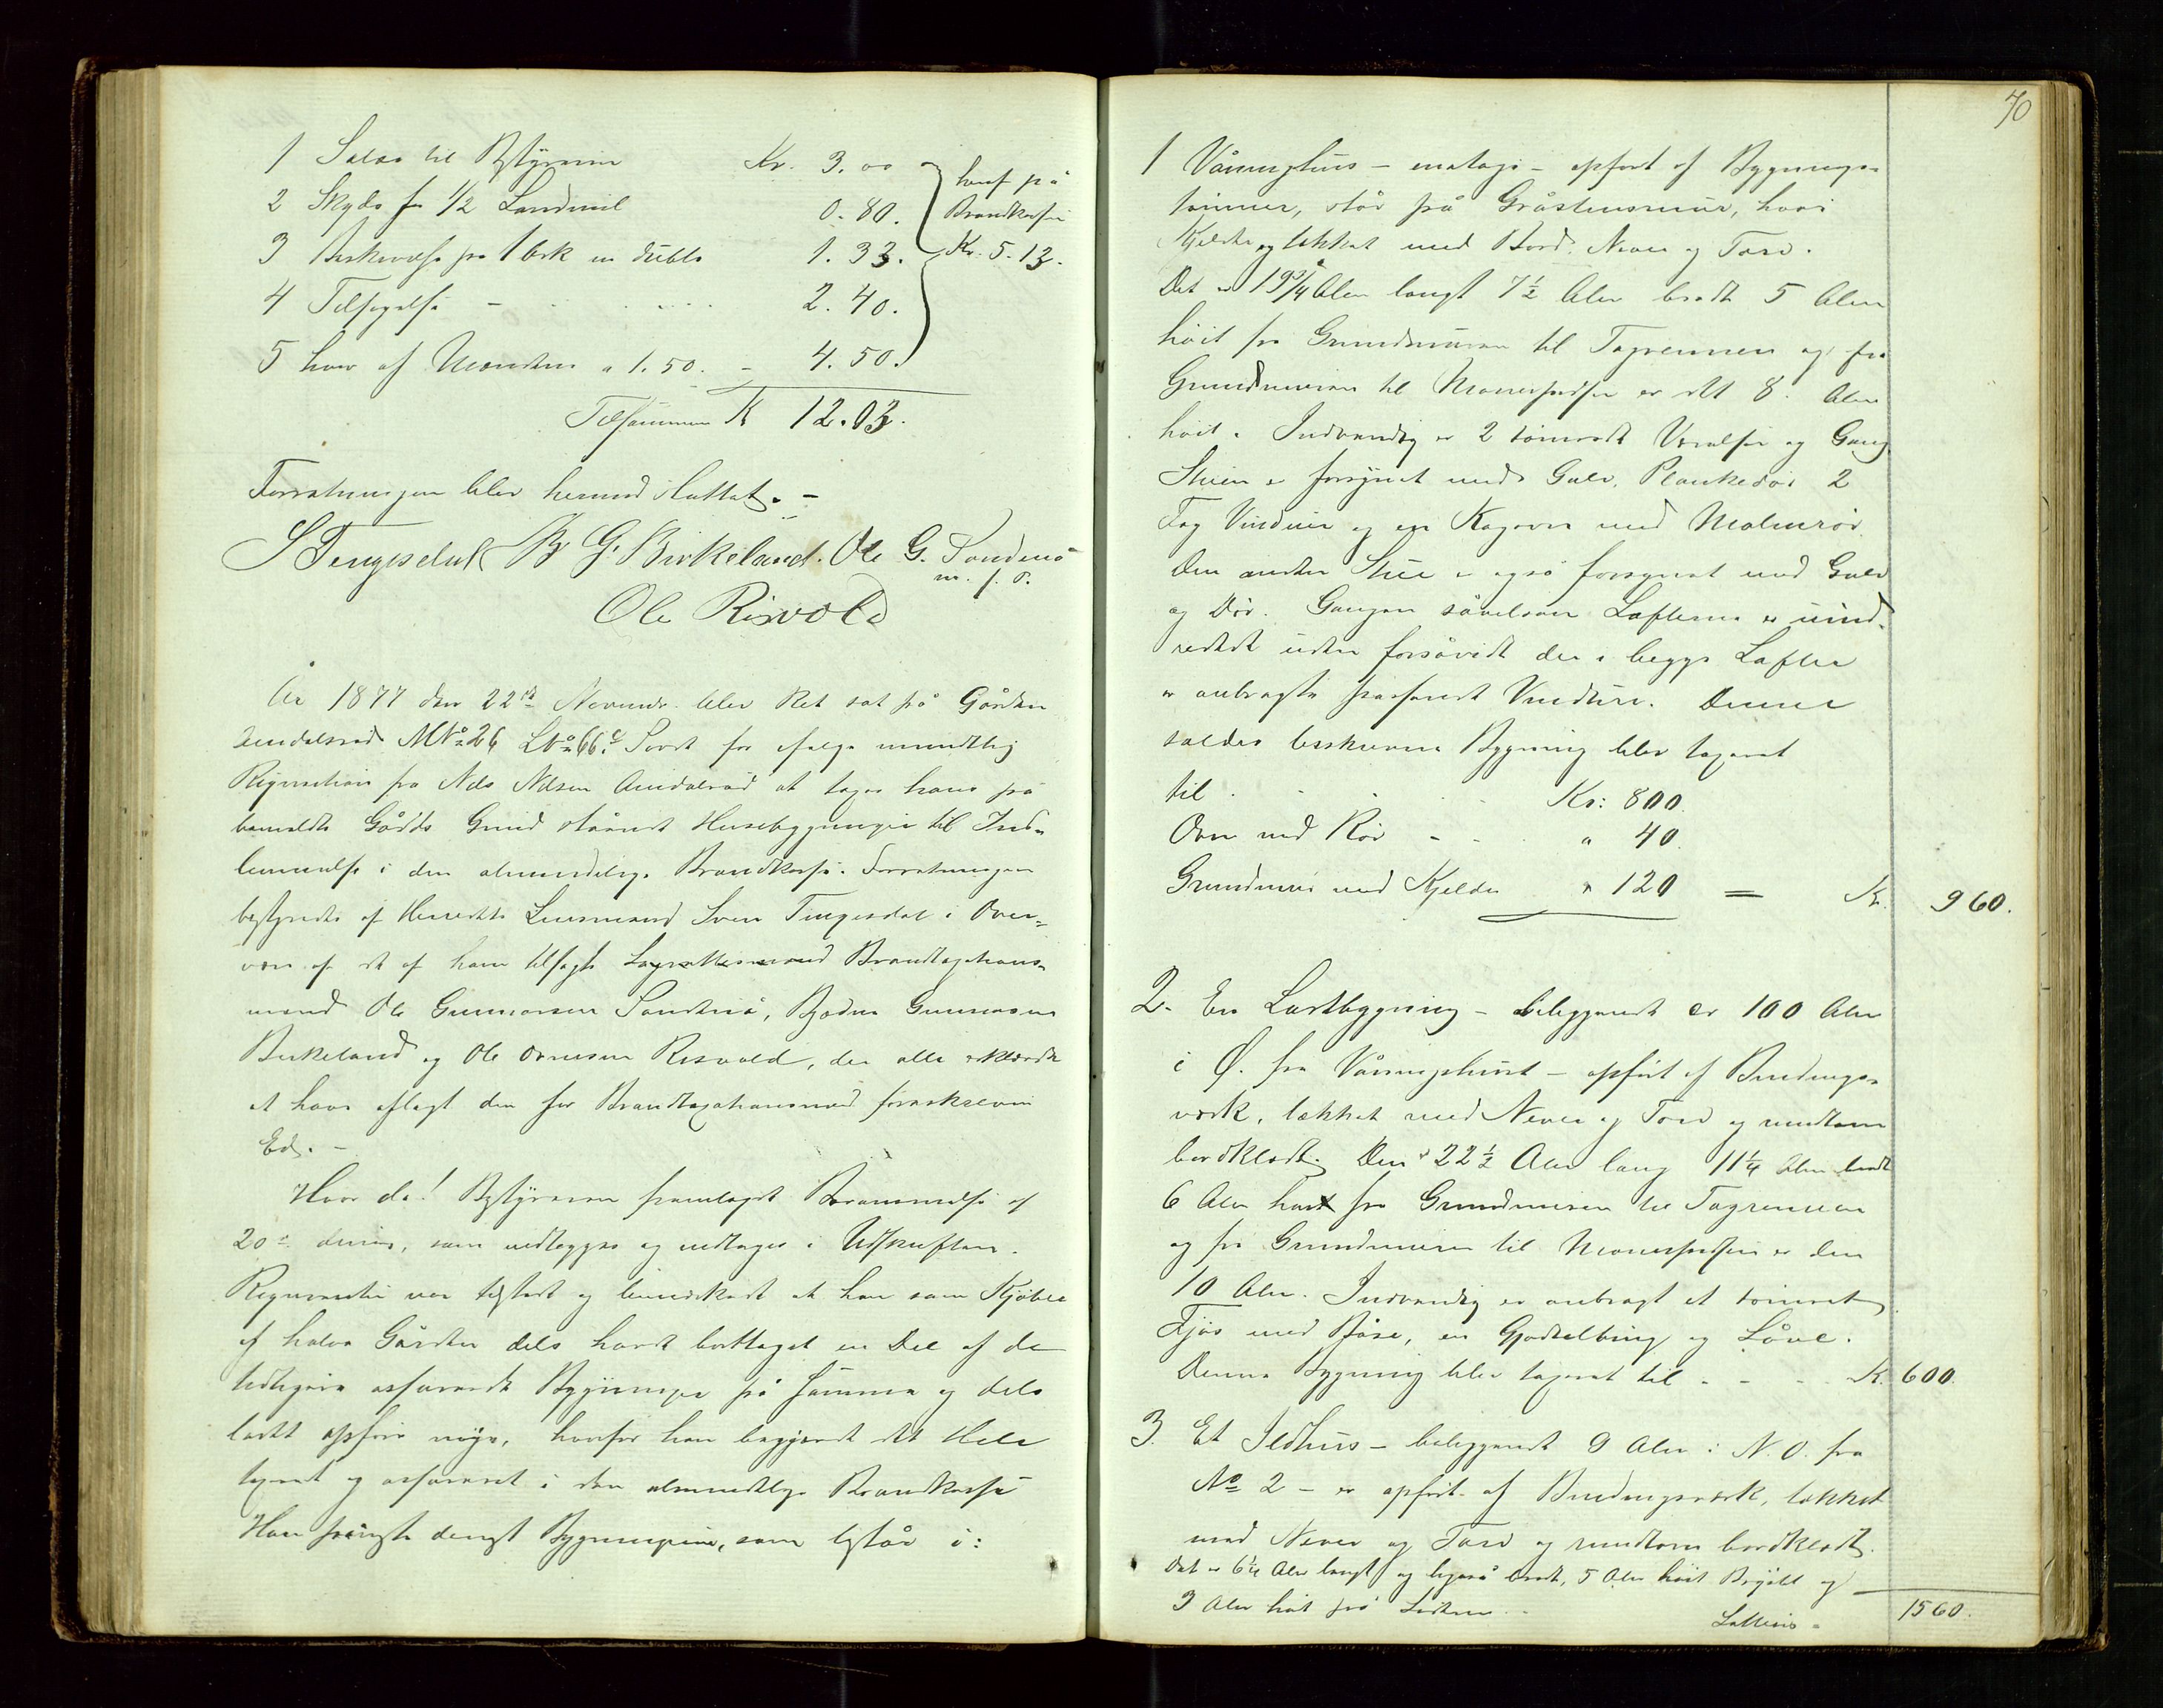 1 Salær til Bestyreren Kr. 3.00
2 Skyds for 1/2 Landmil 0.80.
3 Beskrivelse pr 1 ark in dublo 1.33.
4 Tilsigelse - 2.40.
5 hver af Mændene a 1.50. - 4.50.
heraf på
Brandkassen
Kr. 5.13.
Tilsammen K 12.03.
Forretningen blev hermed sluttet. -
S Tengesdal B G. Birkeland. Ole G. Sandenå
m. f. P.
Ole Risvold
År 1877 den 22de Novembr. blev Ret sat på Gården
MNo 26 LNo 66c for efter mundtlig
Reqvisition fra Nels Nelsen at taxere hans på
bemeldte Gårds Grund stående Husebygninger til Ind-
lemmelse i den almindelige Brandkasse. Forretningen
bestyredes af Herredets Lensmand Sven Tengesdal i Over-
vær af de af ham tilsagte Lagrettesmænd Brandtaxations-
mænd Ole Gunnarsen Sandenå, Gunnarsen
Birkeland og Ole Risvold, der alle erklærede
at have aflagt den for Brandtaxationsmænd foreskrevne
Ed. -
Hvor da! Bestyreren fremlagde Berammelse af
20de dennes, som vedlægges og indtages i Udskriften.
Reqvirenten var tilstede og bemærkede at han som Kjøber
af halve Gården dels havde borttaget en Del af de
tidligere assurerede Bygninger på samme og dels
ladet opføre nye, hvorfor han begjærede det Hele
taxeret og assureret i den almindelige Brandkasse
Han påviste dernæst Bygningerne, som består i:
70
1 Våningshus - enetages - opført af Bygnings-
tømmer, står på Gråstensmur, hvori
Kjelder og tækket med Bord, Never og Torv.
Det er 19 3/4 Alen langt 7 1/2 Alen bredt 5 Alen
høit fra Grundmuren til Tagrennen og fra
Grundmuren til Mønespidsen er det 8 Alen
høit. Indvendig er 2 tømrede Værelser og Gang
Stuen er forsynet med Gulv, Plankedør 2
Fag Vinduer og en Kogovn med Malmrør.
Den anden Stue er også forsynet med Gulv
og Dør. Gangen såvelsom Lofterne er uind-
redet uden forsåvidt der i begge Lofter
er anbragte Vinduer. Denne
således beskrevne Bygning blev taxeret
til . . . . Kr: 800.
Ovn med Rør - - " 40.
Grundmur med Kjelder " 120 = Kr. 960.
2. En Ladebygning - beliggende er 100 Alen
i Ø. fra Våningshuset - opført af Bindings-
værk, tækket med Never og Torv og rundtom
bordklædt. Den er 22 1/2 Alen lang 11 1/4 Alen bredt
6 Alen høit fra Grundmuren til Tagrennen
og fra Grundmuren til Mønespidsen er den
10 Alen. Indvendig er anbragt et tømret
Fjøs med Båse, en Gjødselbing og Låve.
Denne Bygning blev taxeret til - - - K. 600.
3. Et Ildhus - beliggende 9 Alen i N.O. fra
No 2 - er opført af Bindingsværk, tækket
med Never og Torv og rundtom bordklædt.
Det er 6 1/4 Alen langt og ligeså bredt, 5 Alen høit og
3 Alen høit på Siderne. -
Lateris - 1560.